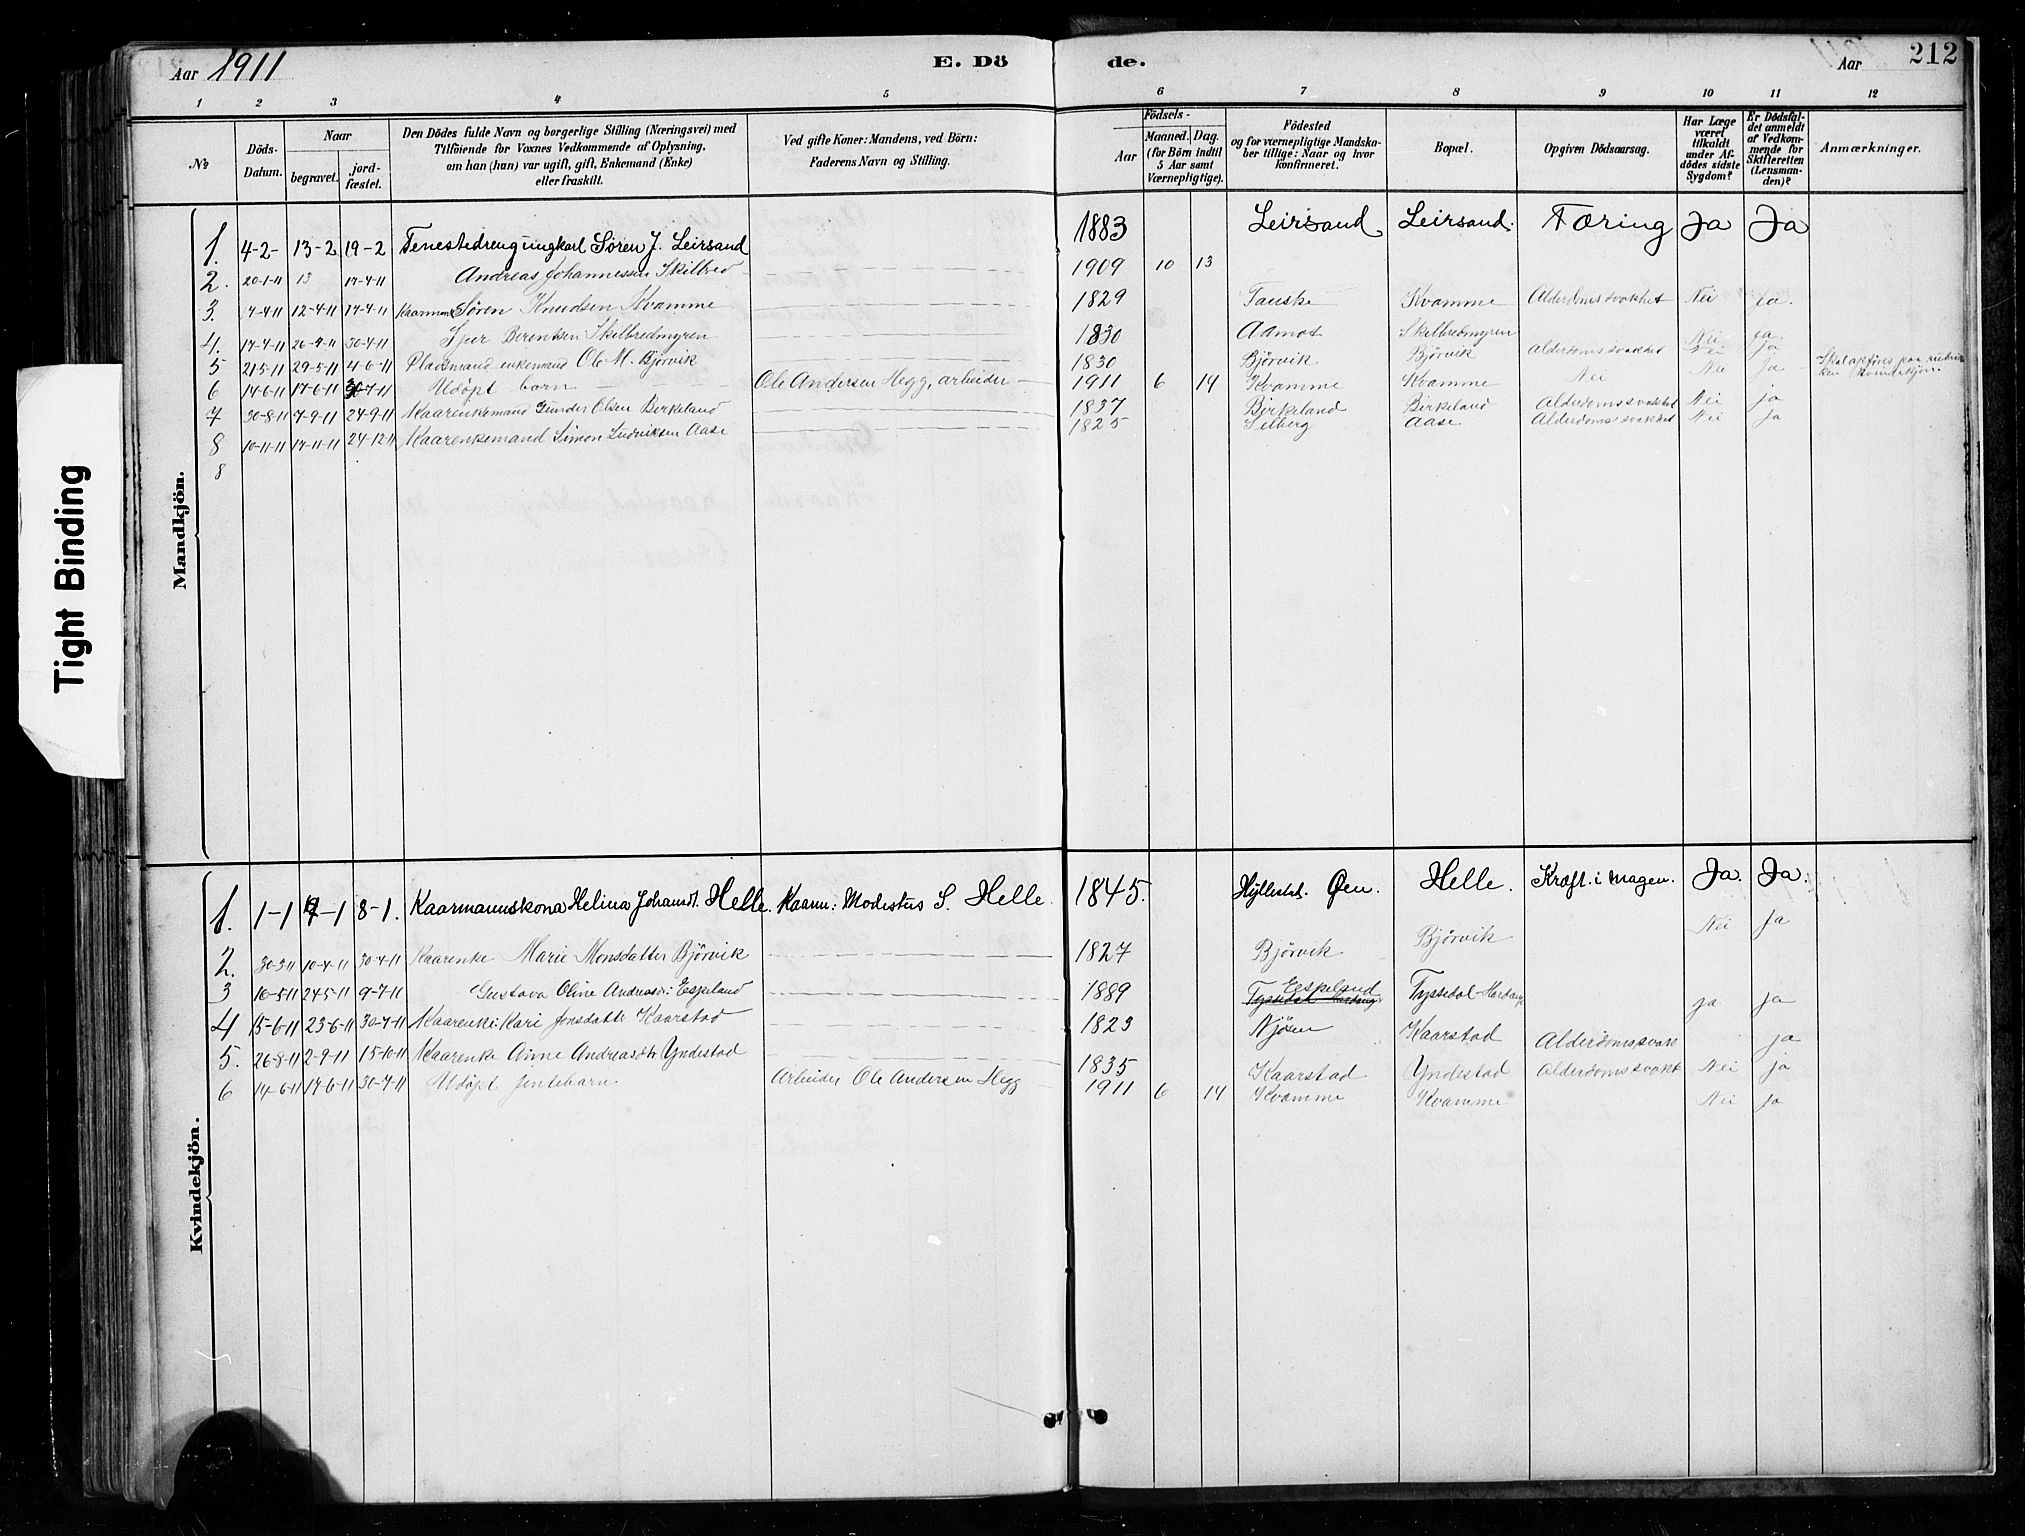 Aar 1911 E. Dö de. Aar 212
1 2 3 4 5 6 7 8 9 10 11 12
№
Döds-Datum.
Naar
begravet.
jord-fæstet.
Den Dödes fulde Navn og borgerlige Stilling (Næringsvei) med
Tilföiende for Voxnes Vedkommende af Oplysning,
om han (han) var ugift, gift, Enkemand (Enke)
eller fraskilt.
Ved gifte Koner: Mandens, ved Börn:
Faderens Navn og Stilling.
Födsels-
Aar
Maaned. Dag.
(for Börn indtil
5 Aar samt
Værnepligtige).
Födested
og for værnepligtige Mandska-
ber tillige: Naar og hvor
konfirmeret.
Bopæl.
Opgiven Dödsaarsag.
Har Læge
været
tilkaldt
under Af-
dödes sidste
Sygdom?
Er Dödsfal-
det anmeldt
af Vedkom-
mende for
Skifteretten
(Lensman-
den)?
Anmærkninger.
Mandkjön.
1. 4-2- 13-2 19-2 Tenestedreng ungkarl Søren J. Leirsand 1883 Leirsand Leirsand. Tæring Ja Ja
2. 20-1-11 13 17-4-11 Andreas Johannessen Skilbred 1909 10 13
3. 7-4-11 12-4-11 17-4-11 Kaarmand Søren Knudsen Kvamme 1829 Tauske Kvamme Alderdomssvakhet Nei Ja.
4. 17-4-11 26-4-11 30-4-11 Iver Berentsen Skilbredmyren 1830 Aamot Skilbredmyren Nei ja.
5 21-5-11 29-5-11 4-6-11 Pladsmand enkemand Ole M. Bjørvik 1830 Bjørvik Bjørvik Alderdomssvakhet Nei Ja
6 14-6-11 17-6-11 30-7-11 Udøpt barn Ole Andersen Hegg, arbeider 1911 6 14 Kvamme Kvamme Nei Nei Ja Skal opføres paa rubrik-
ken kvindekjøn
7 30-8-11 7-9-11 24-9-11 Kaarenkemand Gunder Olsen Birkeland 1837 Birkeland Birkeland Alderdomssvakhet Nei ja
8 10-11-11 17-11-11 24-12-11 Kaarenkemand Simon Ludviksen Aase 1825 Selberg Aase Alderdomssvakhet Nei ja
8
Kvindekjön.
1. 1-1 7-1 8-1. Kaarmannskona Helina Johansd. Helle. Kaarm: Modestus S. Helle. 1845. Hyllestad. Øen. Helle. Kræft i magen. Ja. Ja.
2. 30-3-11 10-4-11 30-4-11 Kaarenke Marie Monsdatter Bjørvik 1827 Bjørvik Bjørvik Nei Ja
3 16-5-11 24-5-11 9-7-11 Gustava Oline Andreasd: Espeland 1889 Espeland
Tyssedal Hardanger Tyssedal Hardang ja ja
4 15-6-11 23-6-11 30-7-11 Kaarenke: Kari Jonsdattr Kaarstad 1823 Njøsen Kaarstad Alderdomssvak ja
5. 26-8-11 2-9-11 15-10-11 Kaarenke Anne Andreasdtr Yndestad 1835 Kaarstad Yndestad Alderdomssvakt Nei ja
6 14-6-11 17-6-11 30-7-11 Udøpt jentebarn Arbeider Ole Andersen Hegg 1911 6 14 Kvamme Kvamme Nei ja
Tight Binding